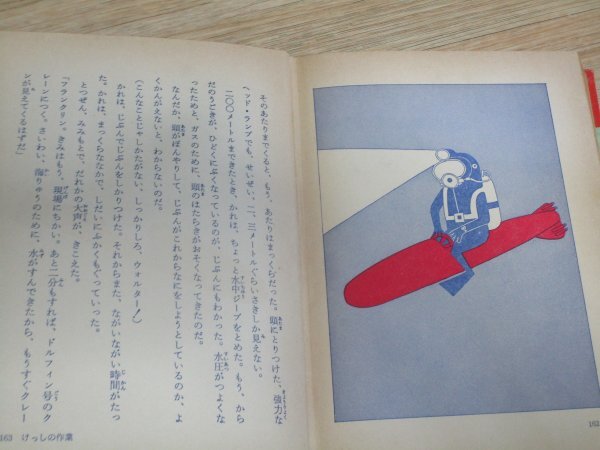 そのあたりまでくると、もう、あたりはまっくらだった。頭にとりつけた、強力な
ヘッド・ランプでも、せいぜい、二、三メートルぐらいさきしか見えない。
二〇〇メートルまできたとき、かれは、ちょっと水中ジープをとめた。もう、から
だのうごきが、ひどくにぶくなっているのが、じぶんにもわかった。水圧がつよくな
ったためと、ガスのために、頭のはたらきがおそくなってきたのだ。
なんだか、頭がぼんやりして、じぶんがこれからなにをしようとしているのか、よ
くかんがえないと、わからないのだ。
(こんなことじゃしかたがない。しっかりしろ、ウォルター!)
かれは、じぶんでじぶんをしかりつけた。それからまた、ながいながい時間がたっ
た。かれは、まっくらななかで、しだいにふかくもぐっていった。
とつぜん、みみもとで、だれかの大声が、きこえた。
「フランクリン。きみはもう、現場にちかい。あと二分もすれば、ドルフィン号のク
レーンにつく。さいわい、海りゅうのために、水がすんできたから、もうすぐクレー
ンが見えてくるはずだ」
163 けっしの作業
162